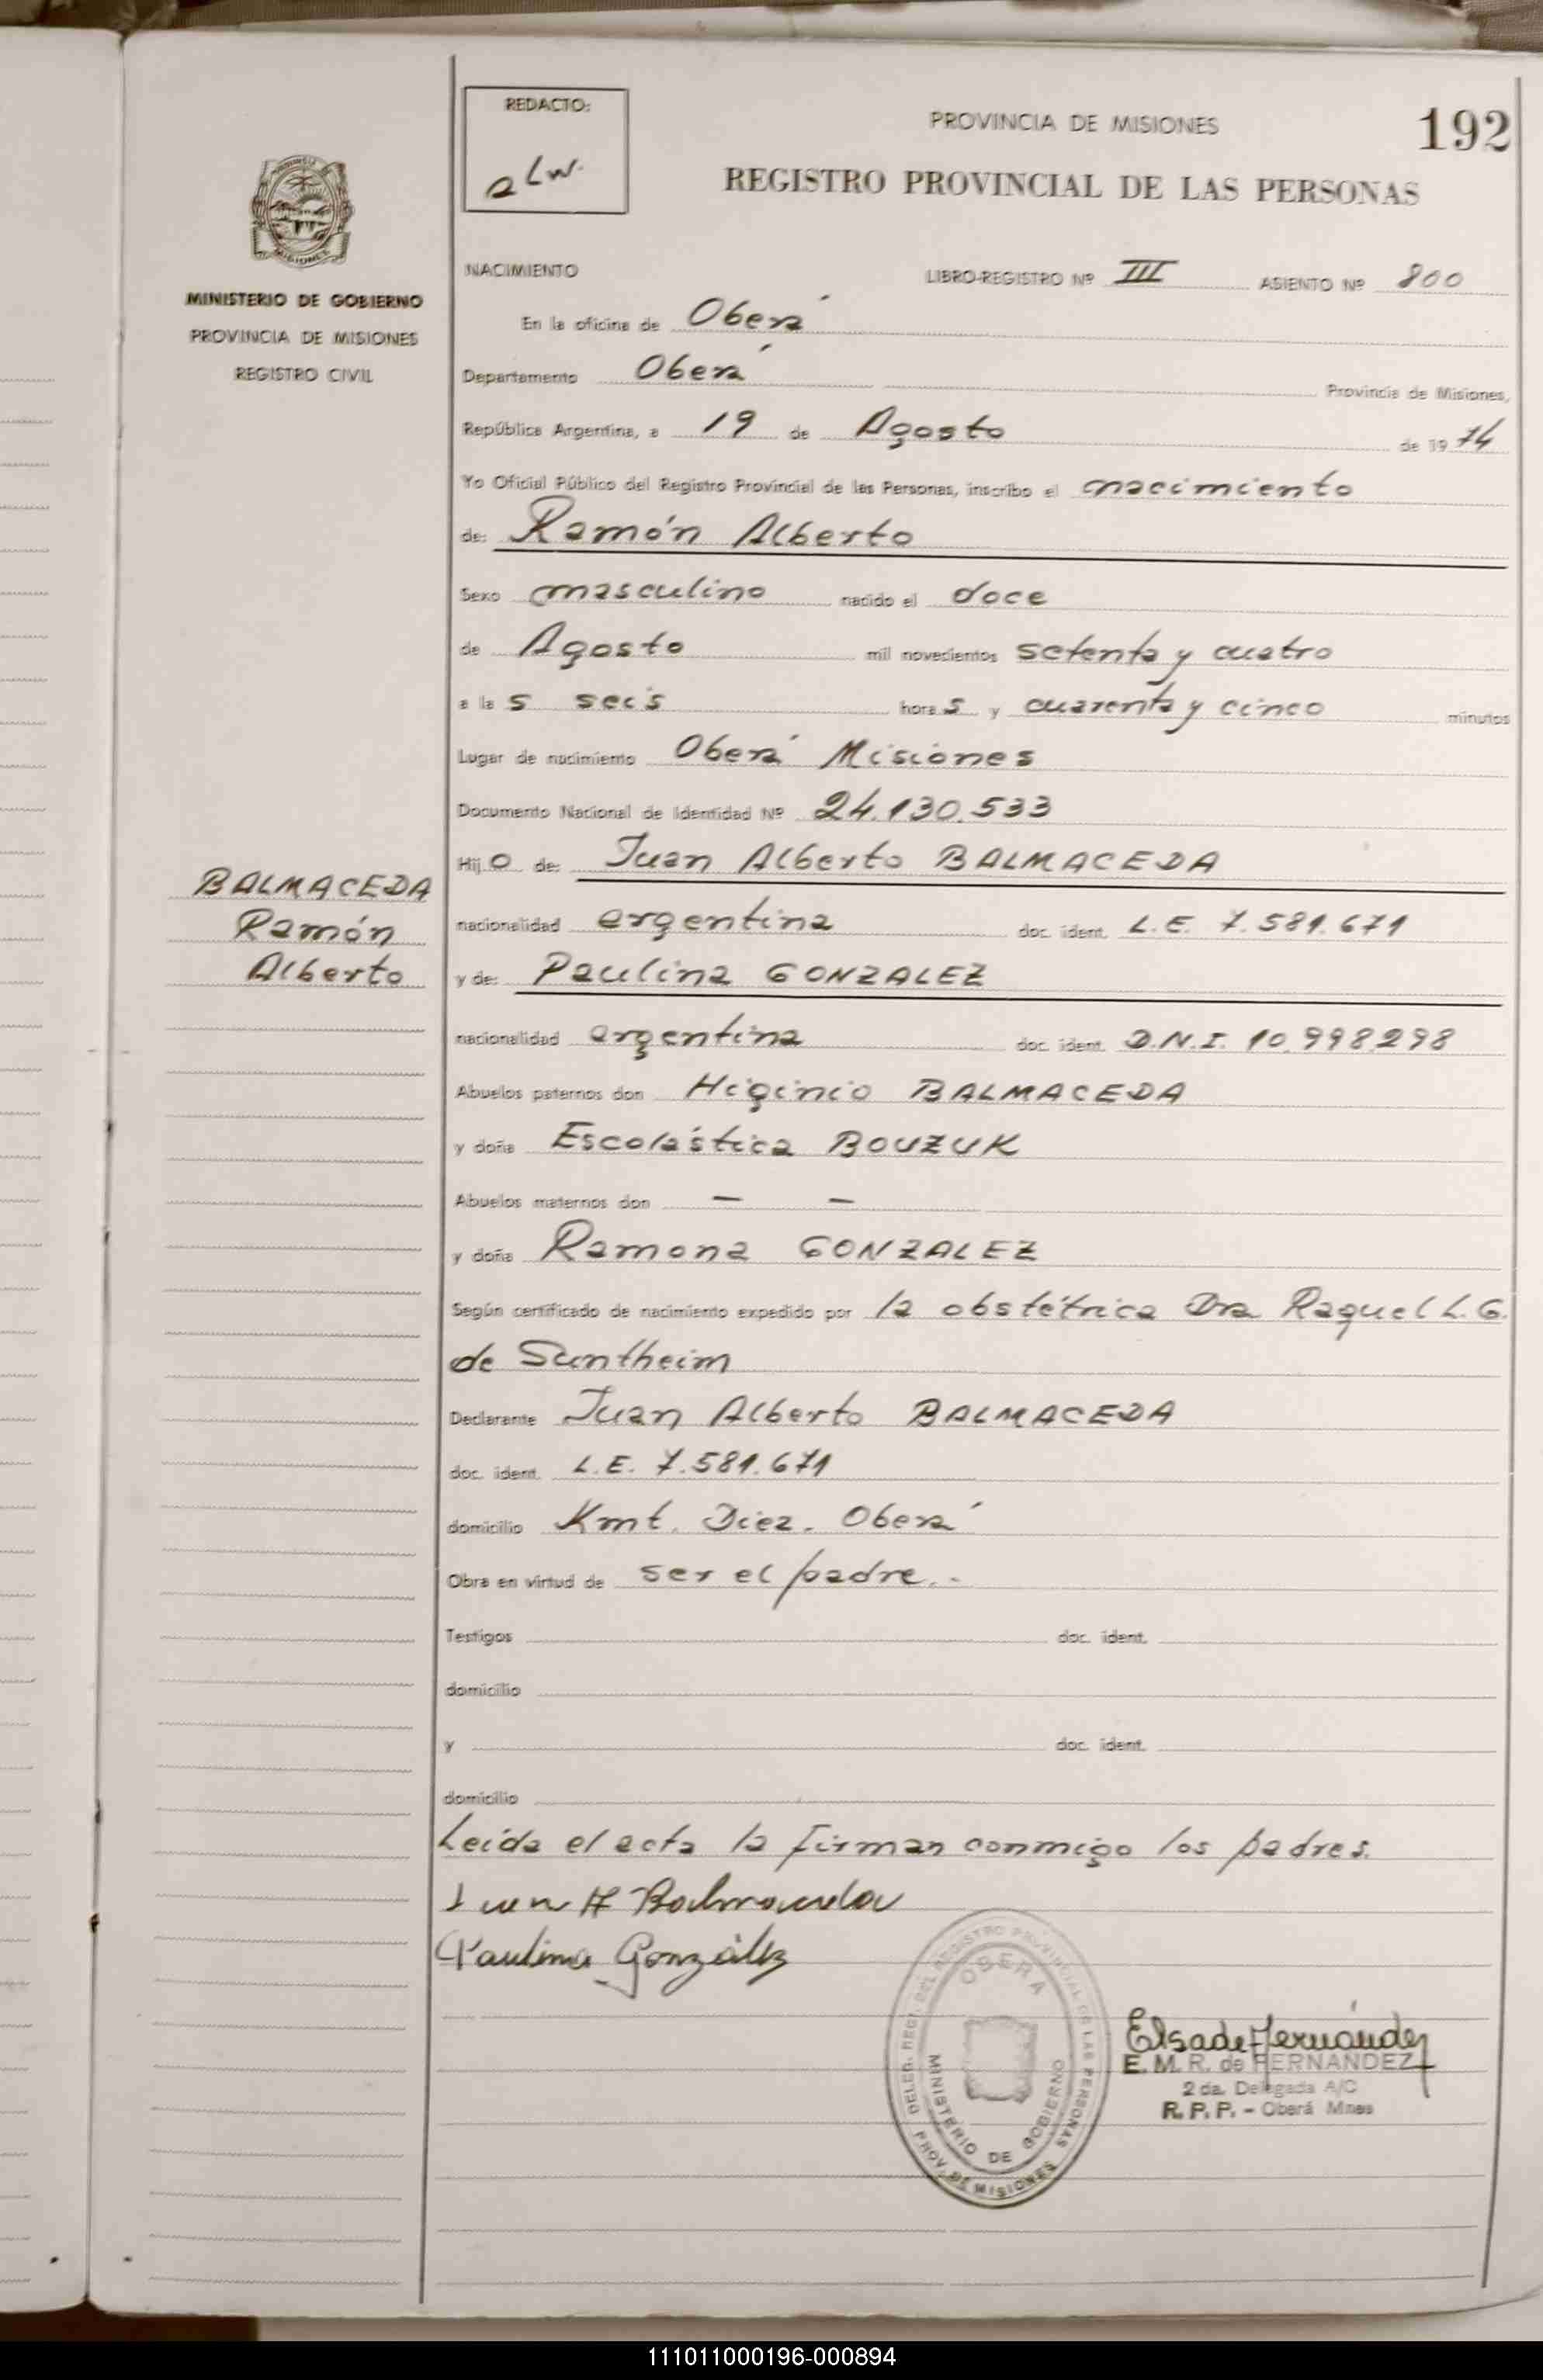 REDACTO:
PROVINCIA DE MISIONES
192
REGISTRO PROVINCIAL DE LAS PERSONAS
MISIONES
MINISTERIO DE GOBIERNO
PROVINCIA DE MISIONES
REGISTRO CIVIL
NACIMIENTO LIBRO-REGISTRO Nº III ASIENTO Nº 800
En la oficina de Oberá
Departamento Oberá Provincia de Misiones,
República Argentina, a 19 de Agosto de 1974
Yo Oficial Público del Registro Provincial de las Personas, inscribo el nacimiento
de: Ramón Alberto
Sexo masculino nacido el doce
de Agosto mil novecientos setenta y cuatro
a las seis horas y cuarenta y cinco minutos
Lugar de nacimiento Oberá Misiones
Documento Nacional de Identidad Nº 24.130.533
Hijo de: Juan Alberto BALMACEDA
BALMACEDA
Ramón
Alberto
nacionalidad argentina doc. ident. L.E. 7.581.671
y de: Paulina GONZALEZ
nacionalidad argentina doc. ident. D.N.I. 10.998.298
Abuelos paternos don Higinio BALMACEDA
y doña Escolástica BOUZUK
Abuelos maternos don — —
y doña Ramona GONZALEZ
Según certificado de nacimiento expedido por la obstétrica Dra Raquel L. G.
de Suntheim
Declarante Juan Alberto BALMACEDA
doc. ident. L.E. 7.581.671
domicilio Kmt. Diez. Oberá
Obra en virtud de ser el padre.-
Testigos doc. ident.
domicilio
y doc. ident.
domicilio
Leida el acta la firman conmigo los padres.
Juan A Balmaceda
Paulina González
DELEG. REGI. DEL REGISTRO PROVINCIAL DE LAS PERSONAS
OBERA
MINISTERIO DE GOBIERNO
PROV. DE MISIONES
Elsa de Fernández
E. M. R. de FERNANDEZ
2 da. Delegada A/C
R. P. P. - Oberá Mnes
111011000196-000894